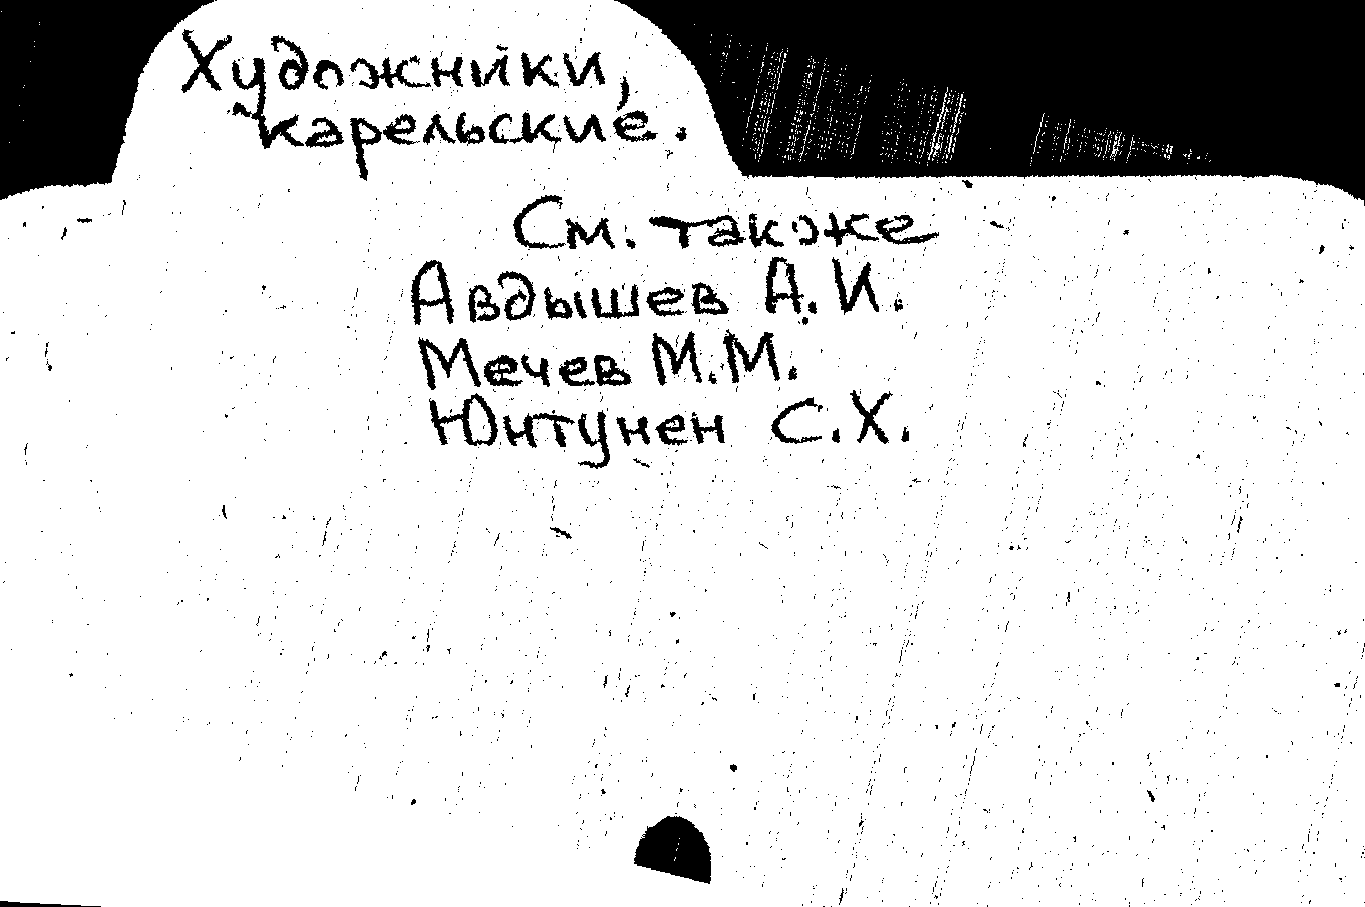 Художники,
карельские.
См. также
Авдышев А. И.
Мечев М.М.
Юнтунен С.Х.